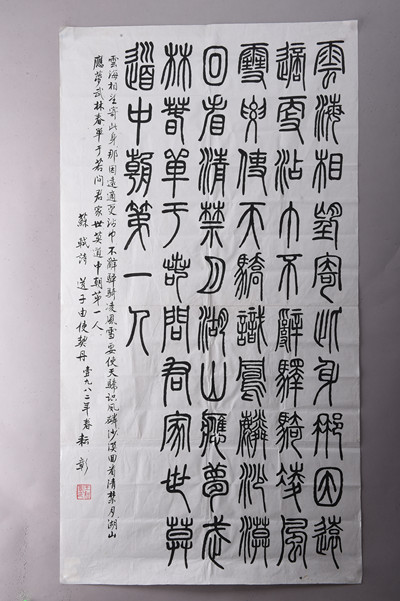 雲海相望寄此身那因遠
適更沾巾不辭驛騎凌風
雪要使天驕識鳳麟沙漠
回看清禁月湖山應夢武
林春單于若問君家世莫
道中朝第一人
雲海相望寄此身那因遠適更沾巾不辭驛騎凌風雪要使天驕識鳳麟沙漠回看清禁月湖山
應夢武林春單于若問君家世莫道中朝第一人
蘇軾詩 送子由使契丹 壹九八二年春 耘彰